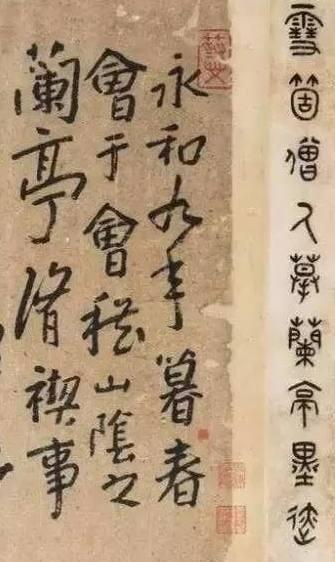 雪箇僧人摹蘭亭墨迹
永和九年暮春
會于會稽山陰之
蘭亭脩禊事